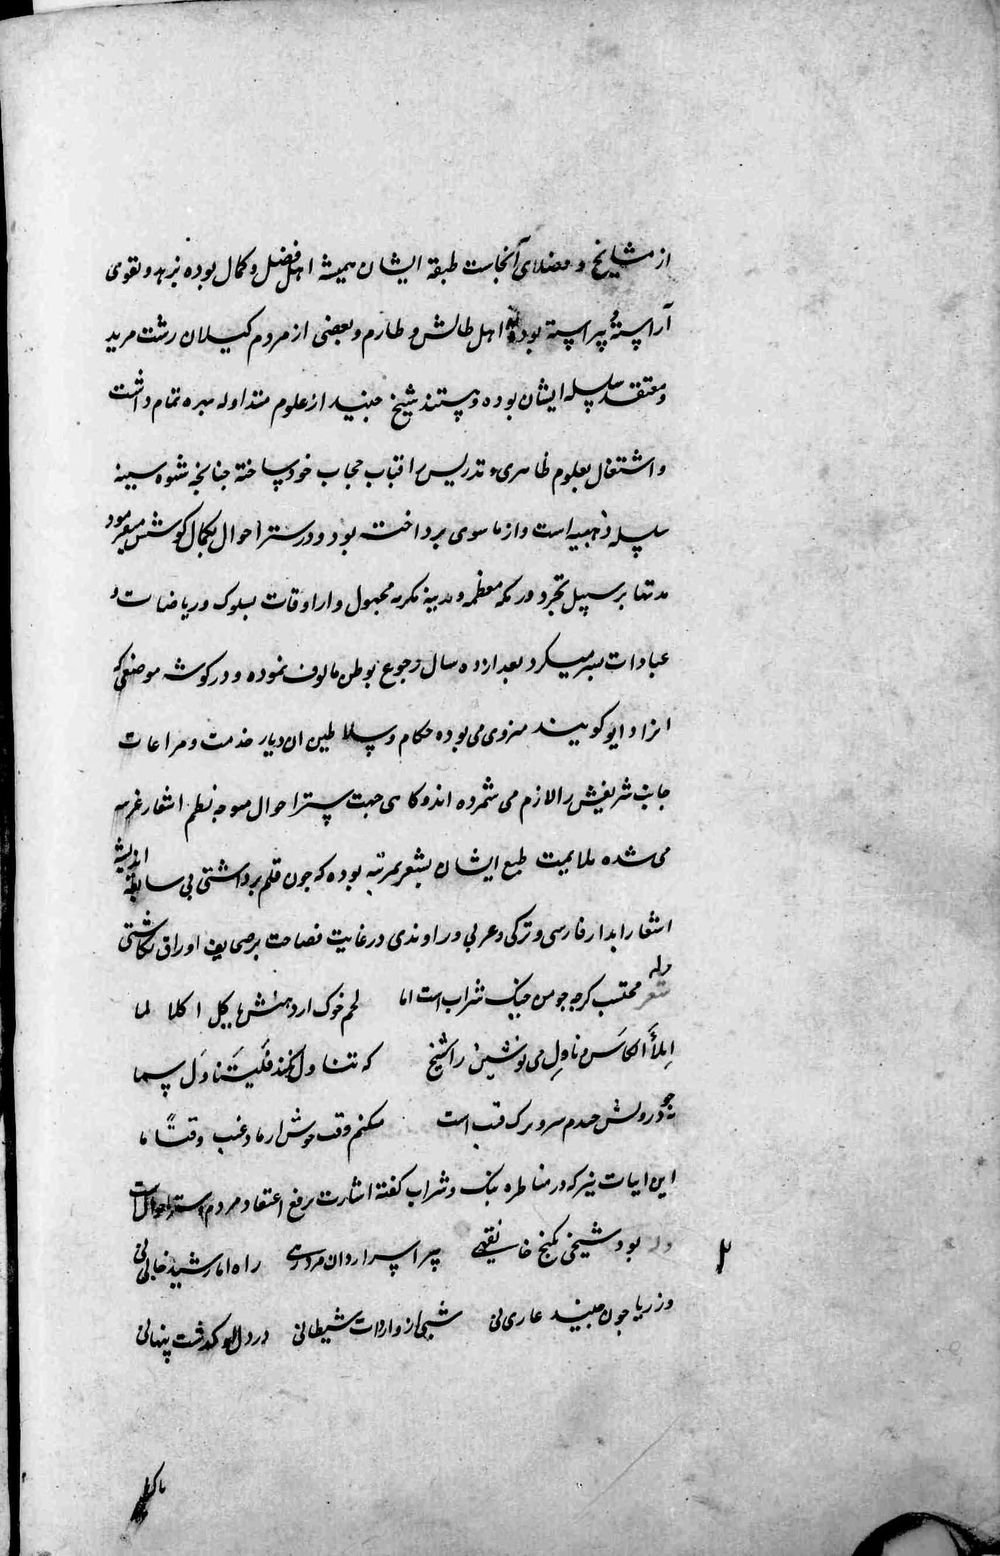 از مشایخ و فضلای آنجاست طبقه ایشان همیشه اهل فضل و کمال بوده بزهد و تقوی
آراسته و پیراسته بوده اهل طالش و طارم و بعضی از مردم کیلان رشت مرید
و معتقد سلسله ایشان بوده و هستند شیخ جنید از علوم متداوله بهره تمام داشت
و اشتغال بعلوم ظاهری و تدریس را قباب حجاب خود ساخته جنانجه شیوه سینه
سلسله ذهبیه است و از ماسوی برداخته بود و در ستر احوال بکمال کوشش میفرمود
مدتها بر سبیل تجرد در مکه معظمه و مدینه مکرمه اوقات بسلوک و ریاضات و
عبادات بسر میکرد بعد از ده سال رجوع بوطن مالوف نموده و در کوشه موضعی که
انرا کویند منزوی می بوده حکام و سلاطین ان دیار خدمت و مراعات
جانب شریفش را لازم می شمرده اند و کاهی جهت ستر احوال متوجه نظم اشعار غریبه
می شده ملایمت طبع ایشان بشعر بمرتبه بوده که جون قلم برداشتی بی سابقه اندیشه
اشعار ابدار فارسی و ترکی و عربی و راوندی در غایت فصاحت بر صحایف اوراق نکاشتی
وله
شعر محتسب کرجه جو من جنک شراب است اما لحم خوک ار دهنش یاکل اکلا لما
املأ الکاس و ناول می نوشین را شیخ که تناول نکند فلیتناول سما
درویش سر و برک مکنم وقت خوش ار وقتا ما
این ابیات نیز که در مناظره بنک و شراب کفته اشارت برفع اعتقاد مردم و ستر احوال است
وله بود شیخی بکنج خانقهی پیر اسرار دان مرد رهی راه امار شید خالی نی
وز ریا جون جنید عاری نی شبی از واردات شیطانی در دل او کذشت پنهانی
۲